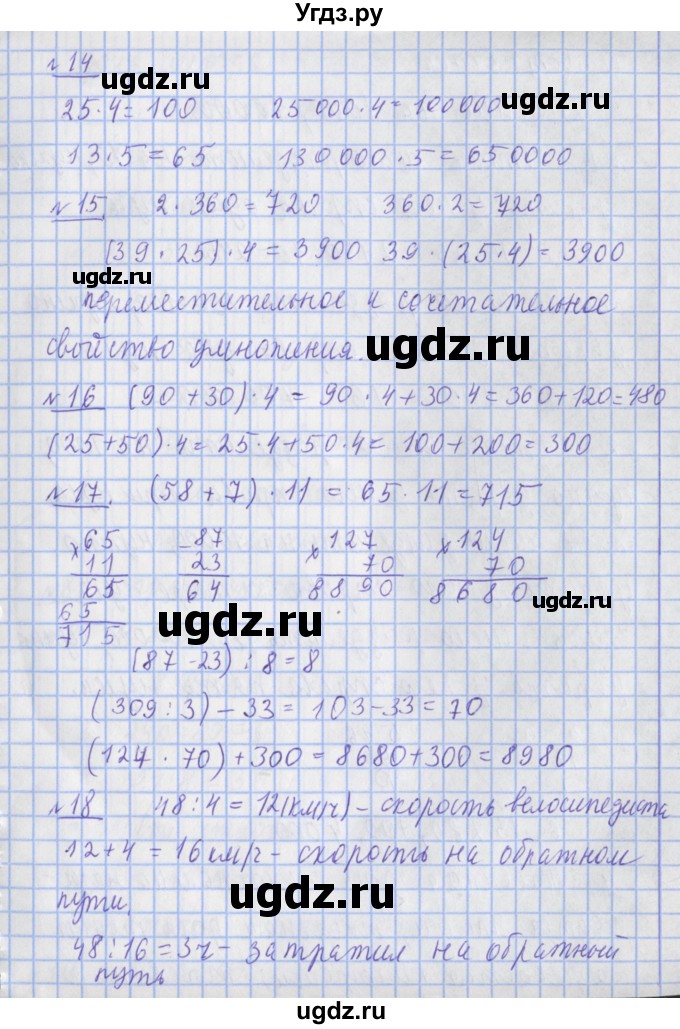 Угдз.ру
№ 14
ugdz.ru
25·4=100 25000·4=100000
ugdz.ru
13·5=65 130000·5=650000
№ 15 2·360=720 360·2=720
(39·25)·4=3900 39·(25·4)=3900
ugdz.ru
переместительное и сочетательное
свойство умножения.
ugdz.ru
№ 16 (90+30)·4=90·4+30·4=360+120=480
(25+50)·4=25·4+50·4=100+200=300
№ 17. (58+7)·11=65·11=715
×65 −87 ×127 ×124
11 23 70 70
65 64 8890 8680
ugdz.ru
65
715
ugdz.ru
(87-23):8=8
(309:3)-33=103-33=70
(124·70)+300=8680+300=8980
№ 18 48:4=12(км/ч)-скорость велосипедиста
12+4=16км/ч-скорость на обратном
пути.
ugdz.ru
48:16=3ч-затратил на обратный
путь
ugdz.ru
ugdz.ru